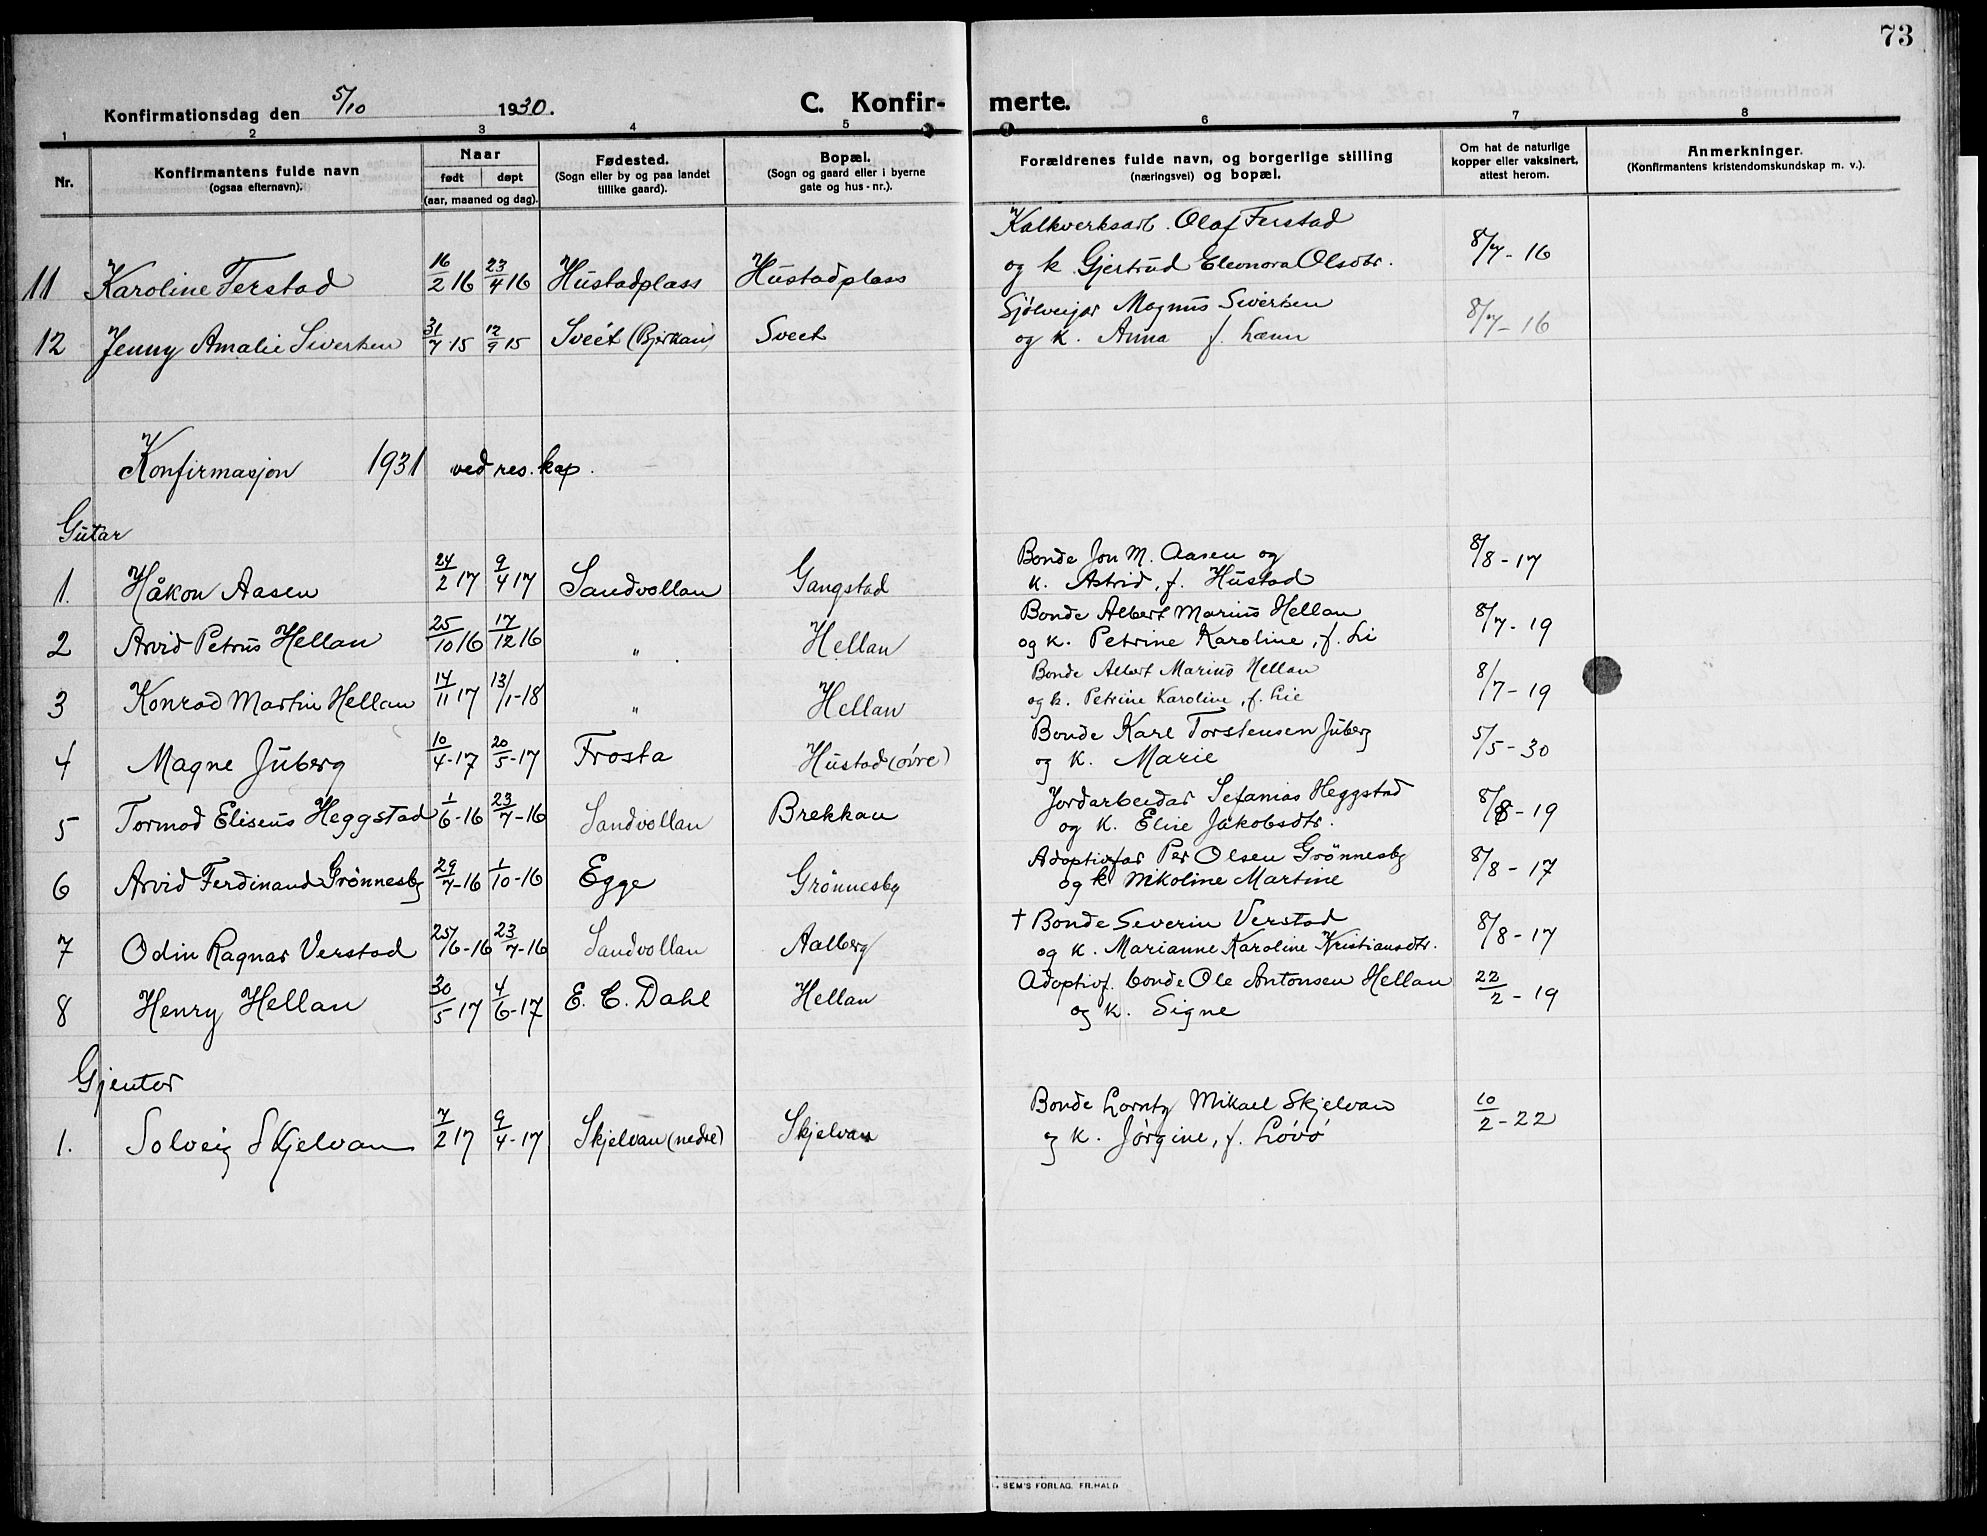 73
Konfirmationsdag den 5/10 1930. C. Konfir- merte.
1 2 3 4 5 6 7 8
Nr.
Konfirmantens fulde navn
(ogsaa efternavn).
Naar
født døpt
(aar, maaned og dag).
Fødested.
(Sogn eller by og paa landet
tillike gaard).
Bopæl.
(Sogn og gaard eller i byerne
gate og hus-nr.).
Forældrenes fulde navn, og borgerlige stilling
(næringsvei) og bopæl.
Om hat de naturlige
kopper eller vaksinert,
attest herom.
Anmerkninger.
(Konfirmantens kristendomskundskap m. v.).
Kalkverksarb. Olaf Ferstad
11 Karoline Ferstad 16/2 16 23/4 16 Hustadplass Hustadplass og k. Gjertrud Eleonora Olsdtr. 8/7-16
Sjølveigar Magnus Sivertsen
12 Jenny Amalie Sivertsen 31/7 15 12/9 15 Sveet (Bjerkan) Sveet og k. Anna f. Lænn 8/7-16
Konfirmasjon 1931 ved res. kap.
Gutar
Bonde Jon M. Aasen og
1. Håkon Aasen 24/2 17 9/4 17 Sandvollan Gangstad k. Astrid, f. Hustad 8/8-17
Bonde Albert Marius Hellan
2 Arvid Petrus Hellan 25/10 16 17/12 16 " Hellan og k. Petrine Karoline, f. Li 8/7-19
Bonde Albert Marius Hellan
3 Konrad Martin Hellan 14/11 17 13/1-18 " Hellan og k. Petrine Karoline, f. Lie 8/7-19
Bonde Karl Torstensen Juberg
4 Magne Juberg 10/4-17 20/5-17 Frosta Hustad (øvre) og k. Marie 5/5-30
Jordarbeidar Sefanias Heggstad
5 Tormod Eliseus Heggstad 1/6-16 23/7-16 Sandvollan Brekkan og k. Elise Jakobsdtr. 8/8-19
Adoptivfar Per Olsen Grönnesby
6 Arvid Ferdinand Grönnesby 29/7-16 1/10-16 Egge Grönnesby og k. Nikoline Martine 8/8-17
† Bonde Severin Verstad
7 Odin Ragnar Verstad 25/6-16 23/7-16 Sandvollan Aalberg og k. Marianne Karoline Kristiansdtr. 8/8-17
Adoptivf. bonde Ole Antonsen Hellan
8 Henry Hellan 30/5-17 4/6-17 E. C. Dahl Hellan og k. Signe 22/2-19
Gjentor
Bonde Lornty Mikael Skjelvan
1. Solveig Skjelvan 7/2 17 9/4-17 Skjelvan (nedre) Skjelvan og k. Jørgine, f. Løvø 10/2-22
SEM'S FORLAG. FR. HALD